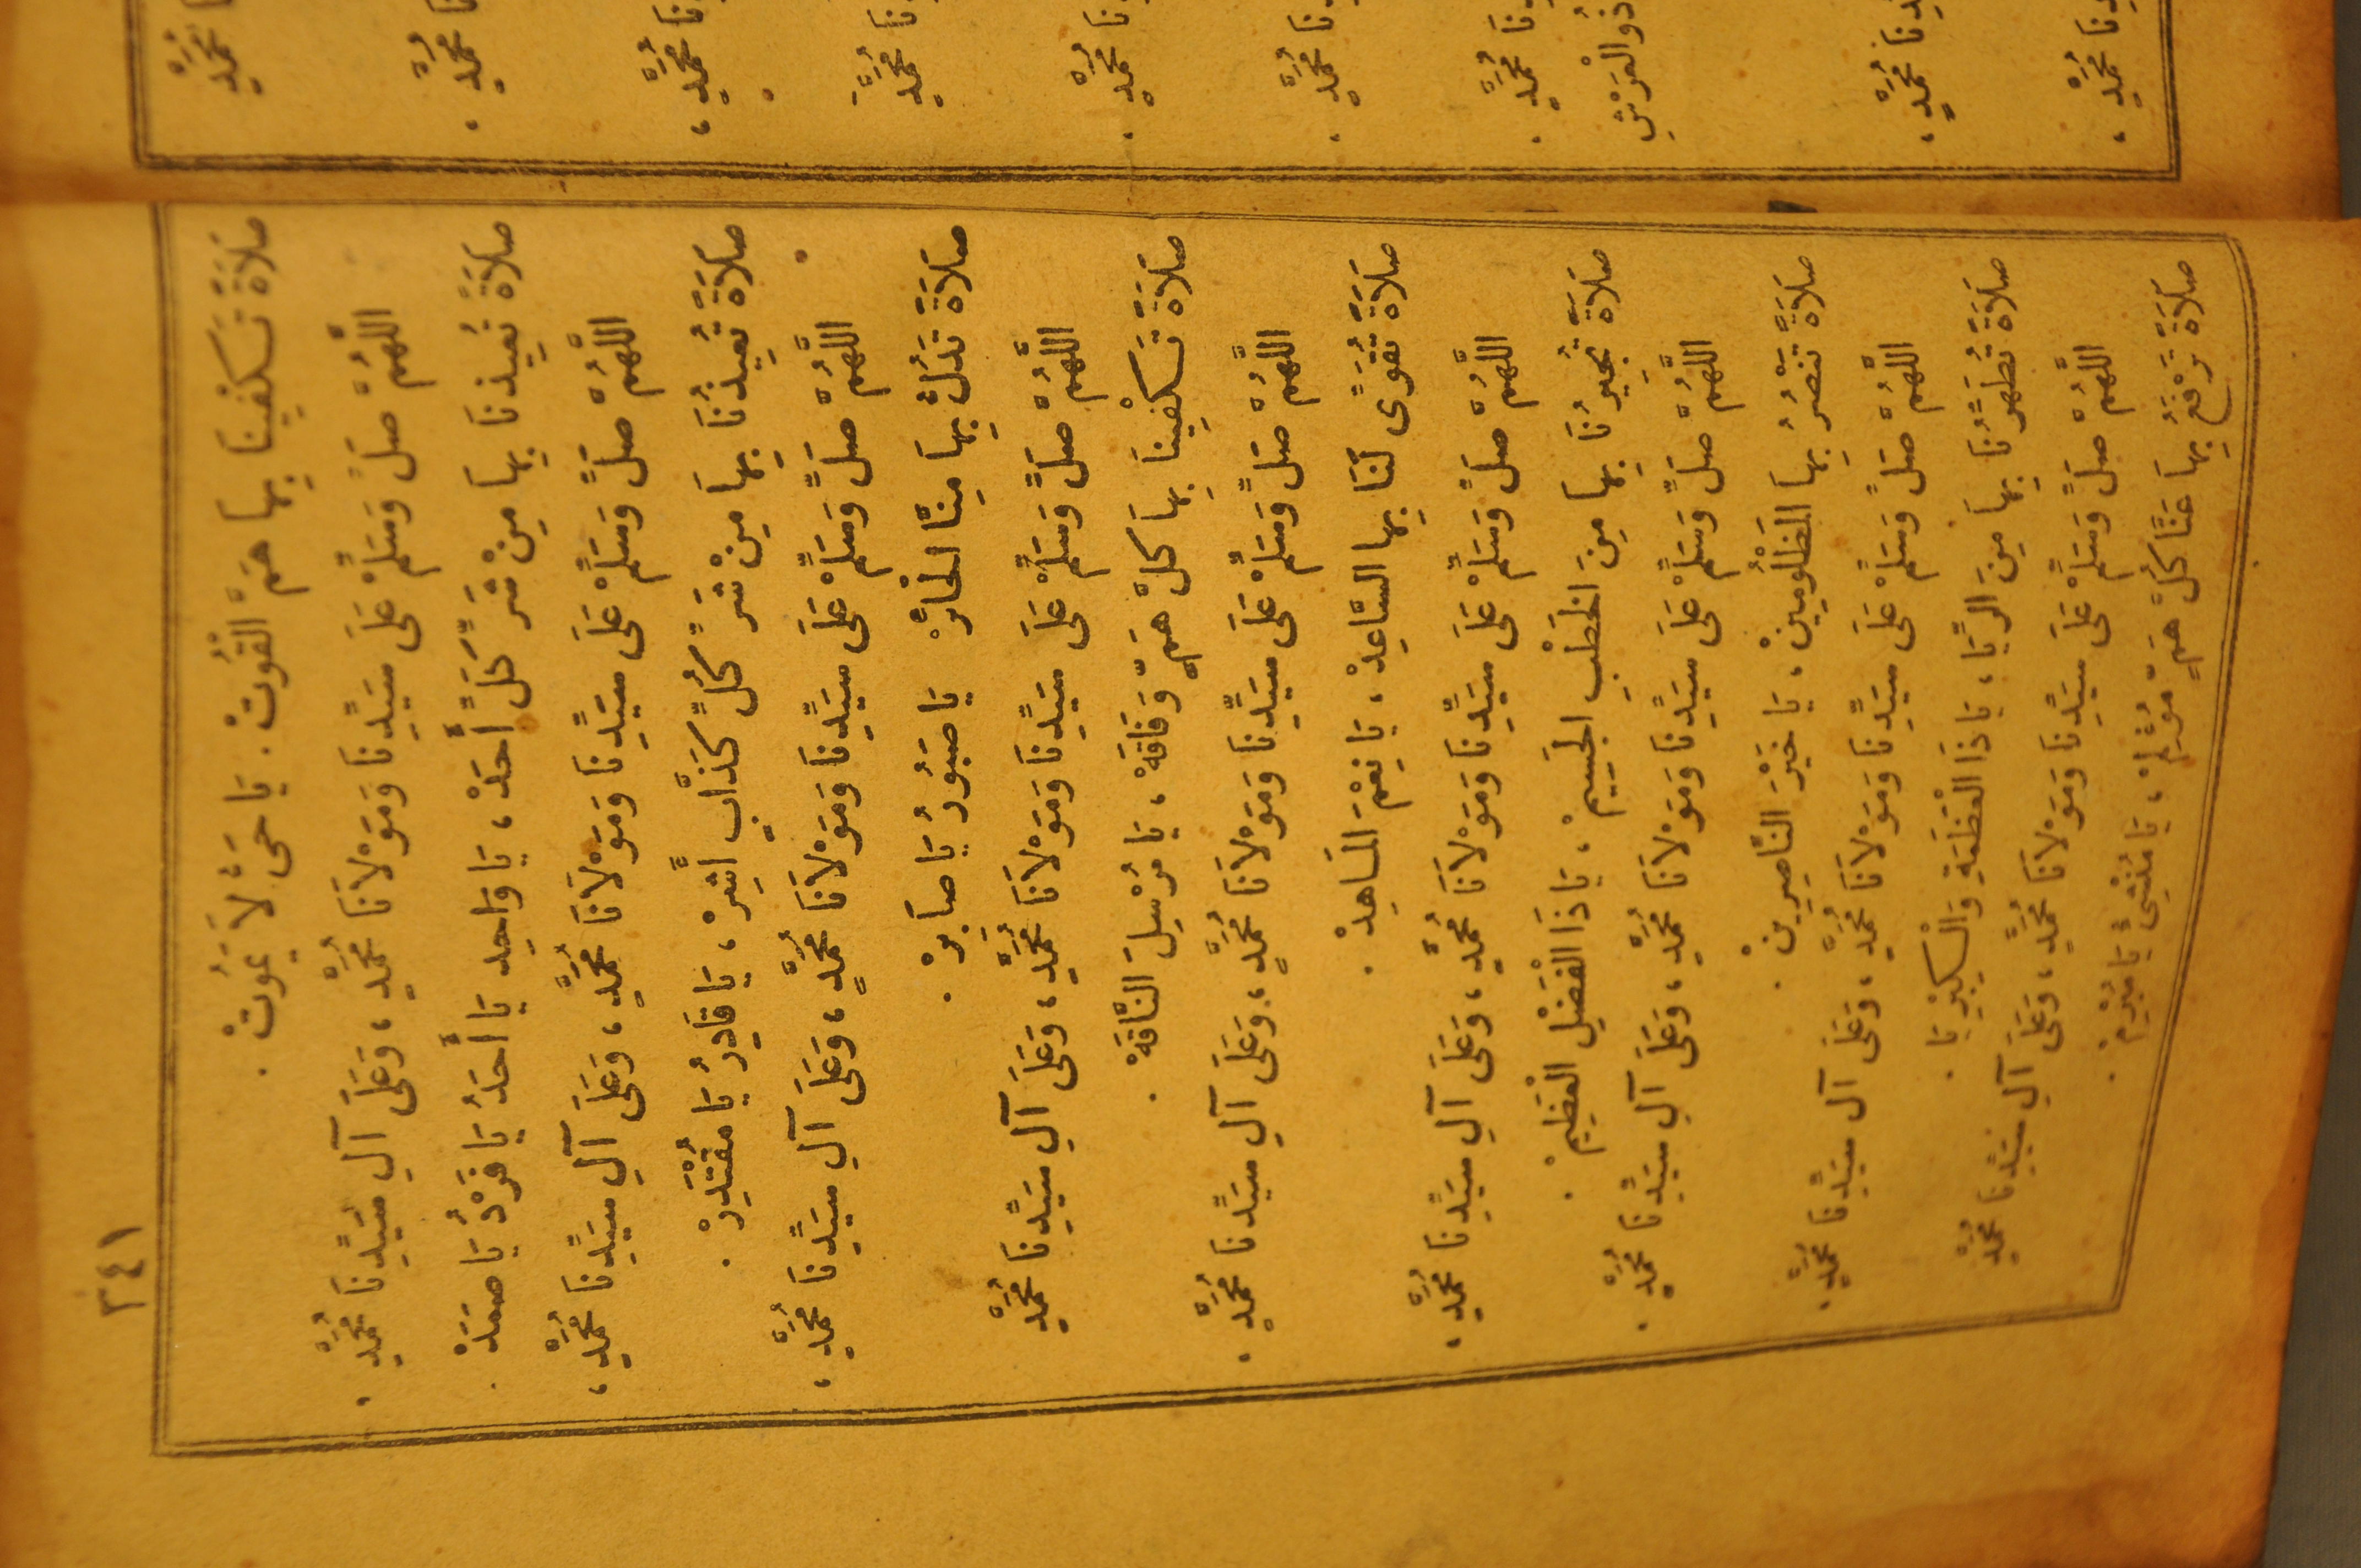 ٣٤١
صَلَاةً تَكْفِينَا بِهَا هَمَّ الْقُوتْ . يَا حَيُّ لَا يَمُوتْ .
اللَّهُمَّ صَلِّ وَسَلِّمْ عَلَى سَيِّدِنَا وَمَوْلَانَا مُحَمَّدٍ ، وَعَلَى آلِ سَيِّدِنَا مُحَمَّدٍ .
صَلَاةً تُعِيذُنَا بِهَا مِنْ شَرِّ كُلِّ أَحَدْ ، يَا وَاحِدُ يَا أَحَدُ يَا فَرْدُ يَا صَمَدْ .
اللَّهُمَّ صَلِّ وَسَلِّمْ عَلَى سَيِّدِنَا وَمَوْلَانَا مُحَمَّدٍ ، وَعَلَى آلِ سَيِّدِنَا مُحَمَّدٍ ،
صَلَاةً تُعِيذُنَا بِهَا مِنْ شَرِّ كُلِّ كَذَّابٍ أَشِرْ ، يَا قَادِرُ يَا مُقْتَدِرْ .
اللَّهُمَّ صَلِّ وَسَلِّمْ عَلَى سَيِّدِنَا وَمَوْلَانَا مُحَمَّدٍ ، وَعَلَى آلِ سَيِّدِنَا مُحَمَّدٍ ،
صَلَاةً تَدُلُّ بِهَا مِنَّا الْحَائِرْ يَا صَبُورُ يَا صَابِرْ .
اللَّهُمَّ صَلِّ وَسَلِّمْ عَلَى سَيِّدِنَا وَمَوْلَانَا مُحَمَّدٍ ، وَعَلَى آلِ سَيِّدِنَا مُحَمَّدٍ
صَلَاةً تَكْفِينَا بِهَا كُلَّ هَمٍّ وَفَاقَهْ ، يَا مُرْسِلَ النَّاقَهْ .
اللَّهُمَّ صَلِّ وَسَلِّمْ عَلَى سَيِّدِنَا وَمَوْلَانَا مُحَمَّدٍ ، وَعَلَى آلِ سَيِّدِنَا مُحَمَّدٍ .
صَلَاةً تُقَوِّى لَنَا بِهَا السَّاعِدْ ، يَا نِعْمَ الْمَاهِدْ .
اللَّهُمَّ صَلِّ وَسَلِّمْ عَلَى سَيِّدِنَا وَمَوْلَانَا مُحَمَّدٍ ، وَعَلَى آلِ سَيِّدِنَا مُحَمَّدٍ .
صَلَاةً تُجِيرُنَا بِهَا مِنَ الْخَطْبِ الْجَسِيمْ ، يَا ذَا الْفَضْلِ الْعَظِيمْ .
اللَّهُمَّ صَلِّ وَسَلِّمْ عَلَى سَيِّدِنَا وَمَوْلَانَا مُحَمَّدٍ ، وَعَلَى آلِ سَيِّدِنَا مُحَمَّدٍ .
صَلَاةً تَنْصُرُ بِهَا الْمَظْلُومِينْ ، يَا خَيْرَ النَّاصِرِينْ .
اللَّهُمَّ صَلِّ وَسَلِّمْ عَلَى سَيِّدِنَا وَمَوْلَانَا مُحَمَّدٍ ، وَعَلَى آلِ سَيِّدِنَا مُحَمَّدٍ .
صَلَاةً تُطَهِّرُنَا بِهَا مِنَ الرِّيَا ، يَا ذَا الْعَظَمَةِ وَالْكِبْرِيَا .
اللَّهُمَّ صَلِّ وَسَلِّمْ عَلَى سَيِّدِنَا وَمَوْلَانَا مُحَمَّدٍ ، وَعَلَى آلِ سَيِّدِنَا مُحَمَّدٍ
صَلَاةً تَرْفَعُ بِهَا عَنَّا كُلَّ هَمٍّ مُؤْلِمْ ، يَا مُنْشِئُ يَا مُبْرِمْ .
مُحَمَّدٍ
نَا مُحَمَّدٍ .
نَا مُحَمَّدٍ ،
نَا مُحَمَّدٍ
نَا مُحَمَّدٍ .
نَا مُحَمَّدٍ .
نَا مُحَمَّدٍ .
ذُو الْعَرْشِ
دِنَا مُحَمَّدٍ ،
دِنَا مُحَمَّدٍ ،